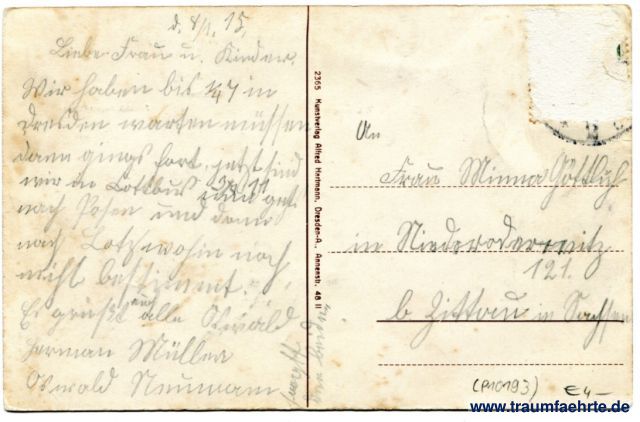 d. 4/1. 15.
Liebe Frau u. Kinder.
Wir haben bis 1/4 7 in
Dresden warten müssen
dann gings fort, jetzt sind
wir in Cottbus
nach Posen und dann
nach Lotz wohin noch
nicht bestimmt.
Es grüßt euch alle Oswald
Herman Müller
Oswald Neumann
2365 Kunstverlag Alfred Hartmann, Dresden-A., Annenstr. 48 II
An
Frau Minna Göttlich
in Niederoderwitz
121.
b Zittau in Sachsen
(P10193) €4-
www.traumfaehrte.de